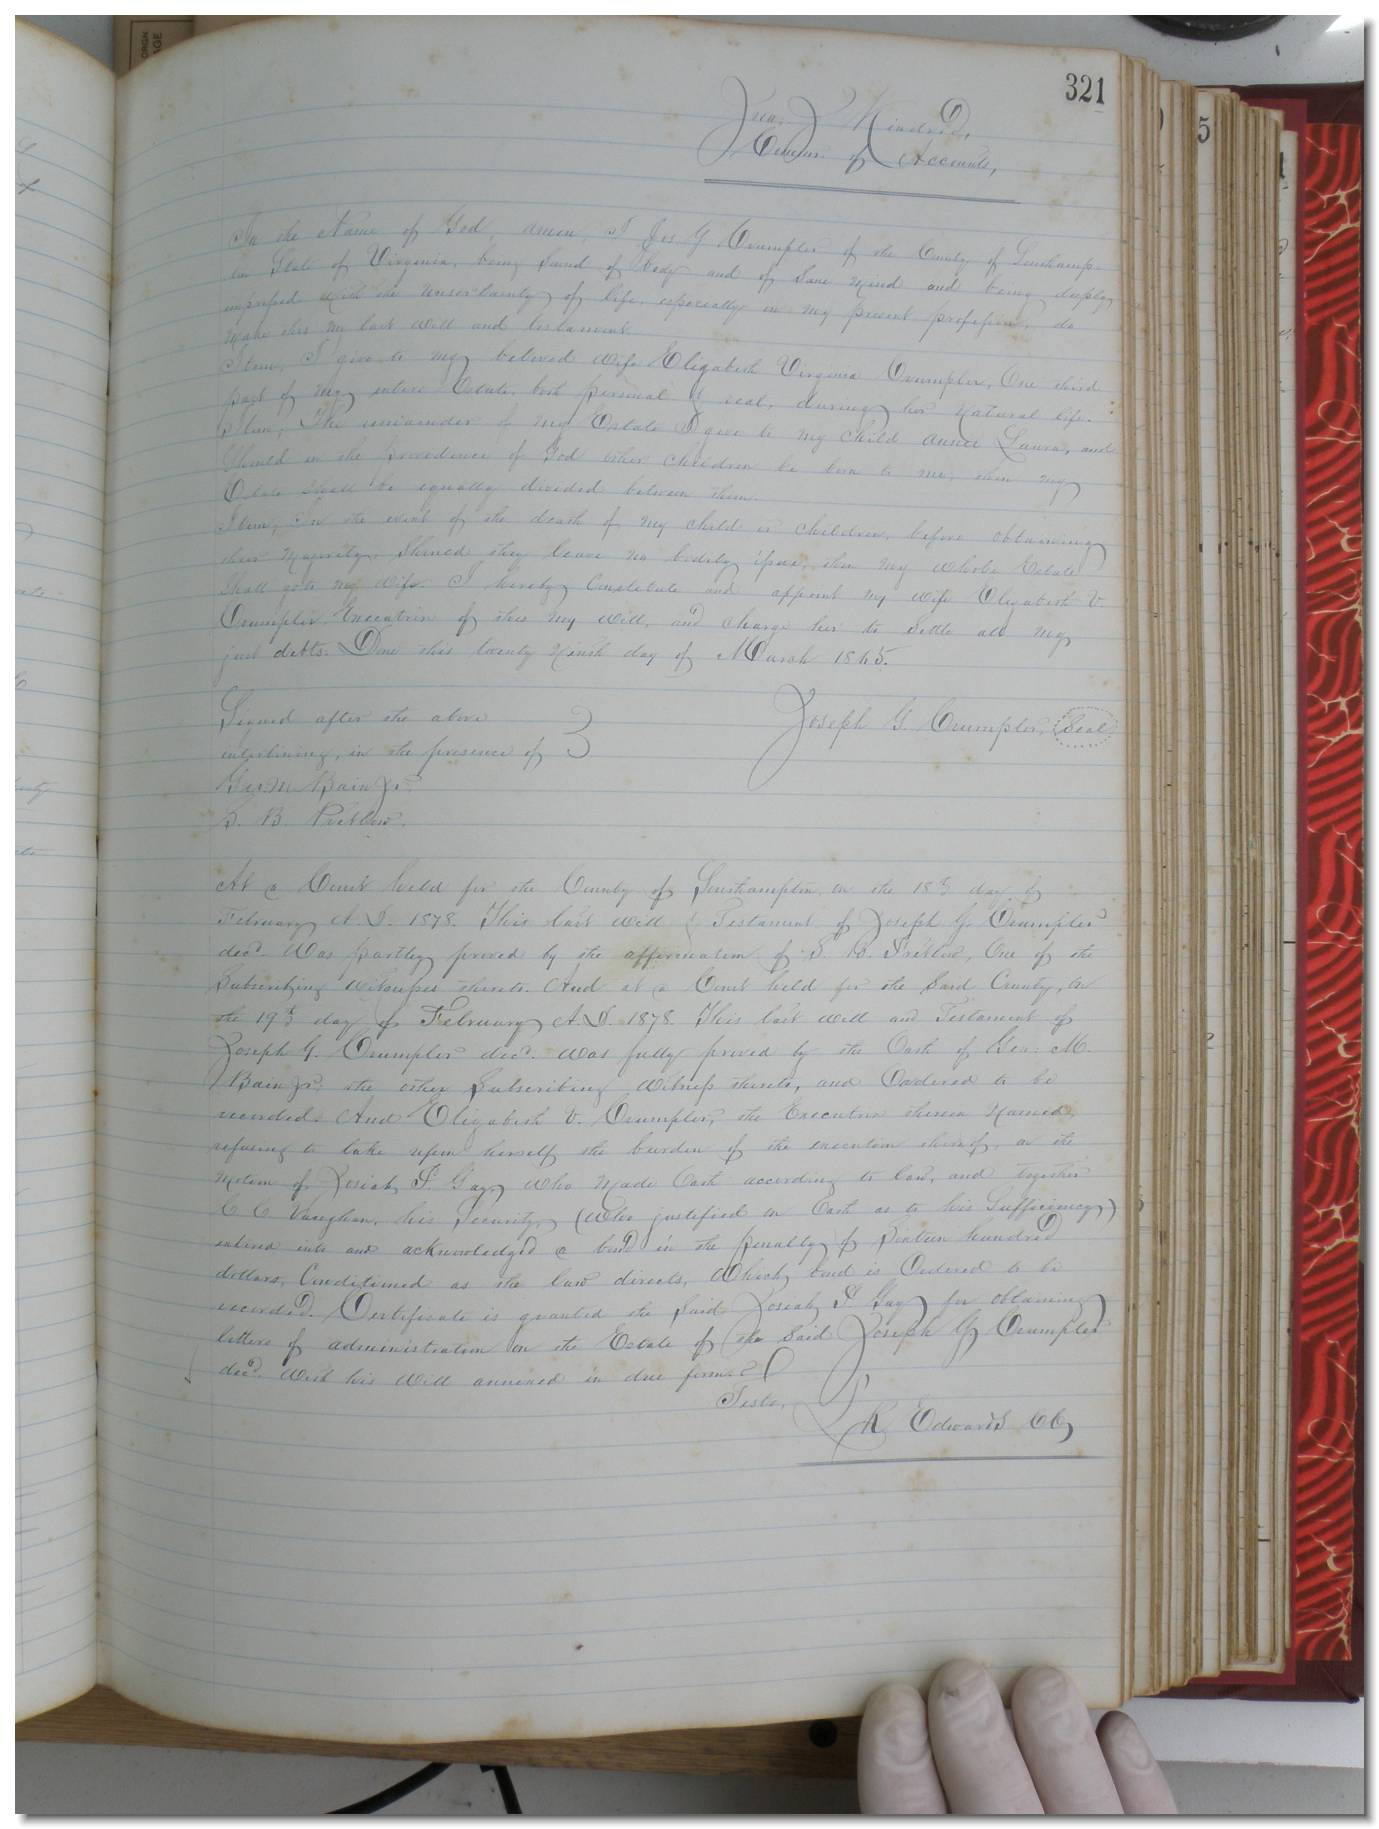 321
Jno. J. Kindred,
Comr. of Accounts,
In the Name of God, amen, I Jos. G Crumpler of the County of Southamp-
ton State of Virginia, being Sound of body and of Sane Mind and being deeply
impressed with the uncertainty of life, especially in my present profession, do
Make this my last will and testament
Item, I give to my beloved wife Elizabeth Virginia Crumpler, One third
part of my entire Estate, both personal & real, during her Natural life.
Item, The remainder of my Estate I give to my child Annie Laura, and
Should in the providence of God other children be born to me, then my
Estate shall be equally divided between them.
Item, In the event of the death of my child or children, before obtaining
their Majority, Should they leave no bodily issue, then my whole Estate
Shall go to my wife. I hereby Constitute and appoint my wife Elizabeth V.
Crumpler, Executrix of this my will, and charge her to Settle all my
just debts. Done this twenty Ninth day of March 1865.
Signed after the above
interlining, in the presence of
Joseph G. Crumpler, Seal
Geo. M. Bain Jr.
S. B. Pretlow.
At a Court held for the County of Southampton, on the 18th day of
February A.D. 1878. This last will & Testament of Joseph G. Crumpler
decd. Was partly proved by the affirmation of S. B. Pretlow, One of the
Subscribing Witnesses thereto. And at a Court held for the Said County, on
the 19th day of February A.D. 1878. This last will and Testament of
Joseph G. Crumpler decd. was fully proved by the Oath of Geo. M.
Bain Jr. the other Subscribing Witness thereto, and Ordered to be
recorded. And Elizabeth V. Crumpler, the Executrix therein Named,
refusing to take upon herself the burden of the execution thereof, on the
Motion of Josiah P. Gay, who Made Oath according to law, and together
C C Vaughan, his Security, (who justified on Oath as to his Sufficiency)
entered into and acknowledged a bond in the penalty of Sixteen hundred
dollars, Conditioned as the law directs, Which bond is Ordered to be
recorded. Certificate is granted the Said Josiah P. Gay for obtaining
letters of administration on the Estate of the Said Joseph G. Crumpler
decd. With his Will annexed in due form.
Teste,
L R Edwards CC